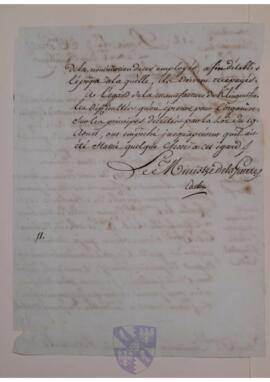 de la nomination de ces employés, afin d'établir
l'époque de la quelle, ils doivent être payés.
A l'égard de la manufacture de Klingenthal
les difficultés qu'on éprouve pour l'organiser
sur les principes décrétés par la loi du 19
Août, ont empêché jusqu'à présent qu'il ait
été statué quelque chose à cet égard
Le Ministre de la Guerre